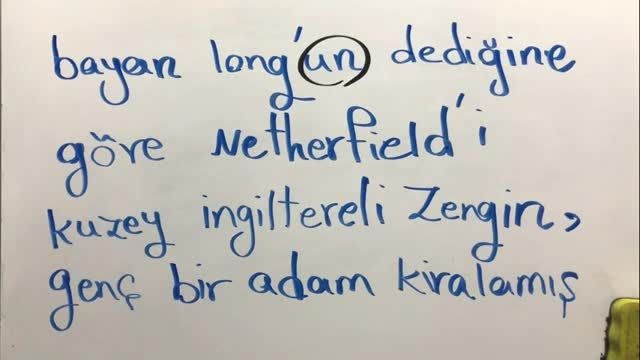 bayan long'un dediğine
göre Netherfield'i
kuzey ingiltereli Zengin,
genç bir adam kiralamış